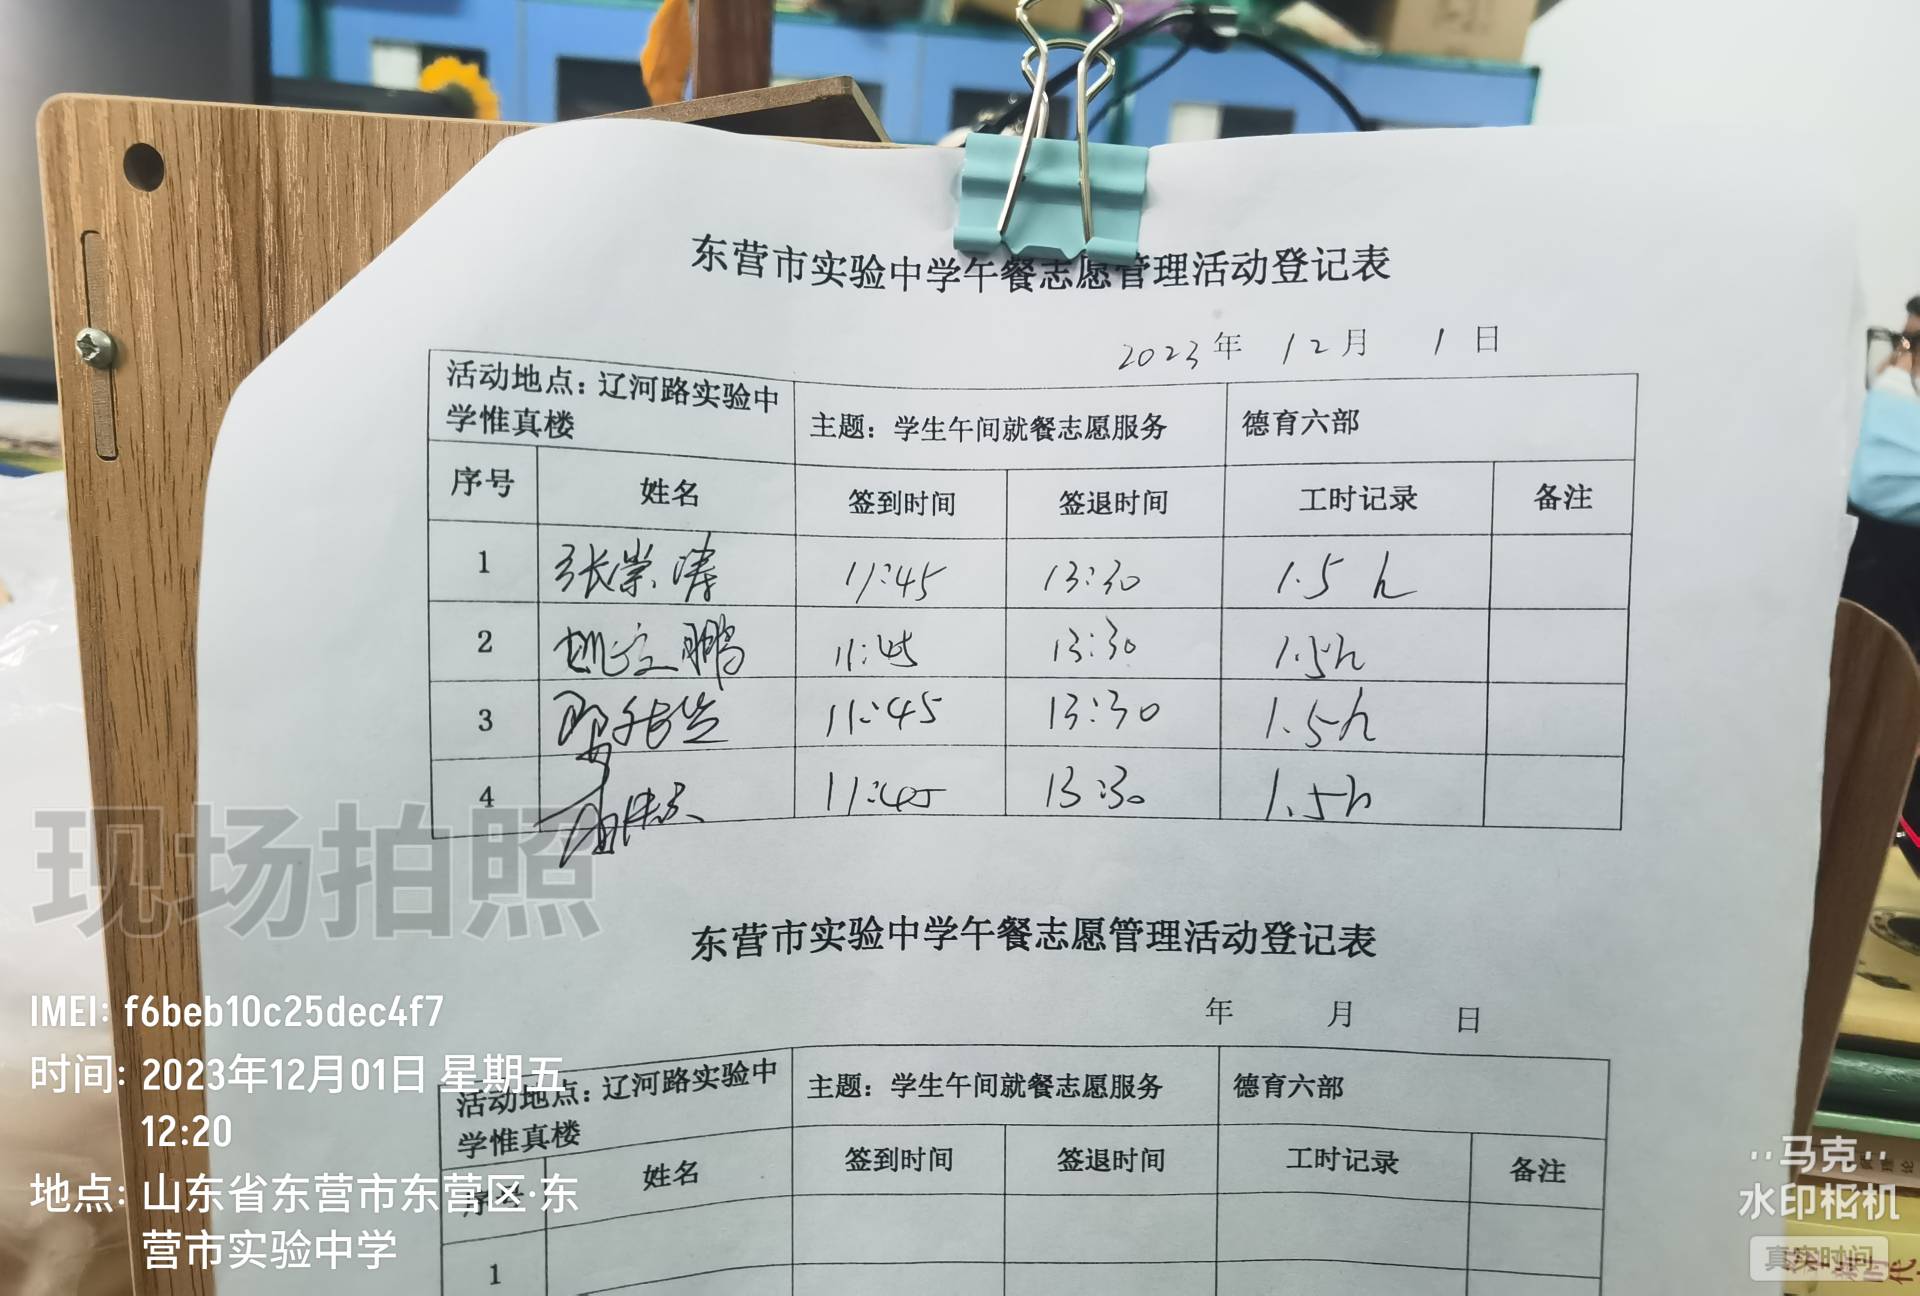 东营市实验中学午餐志愿管理活动登记表
2023年 12月 1日
活动地点：辽河路实验中
学惟真楼
主题：学生午间就餐志愿服务
德育六部
序号 姓名 签到时间 签退时间 工时记录 备注
1 张崇涛 11:45 13:30 1.5 h
2 姚立鹏 11:45 13:30 1.5h
3 11:45 13:30 1.5h
4 11:45 13:30 1.5h
东营市实验中学午餐志愿管理活动登记表
年 月 日
活动地点：辽河路实验中
学惟真楼
主题：学生午间就餐志愿服务
德育六部
序号 姓名 签到时间 签退时间 工时记录 备注
1
现场拍照
IMEI: f6beb10c25dec4f7
时间: 2023年12月01日 星期五
12:20
地点: 山东省东营市东营区·东
营市实验中学
马克
水印相机
真实时间